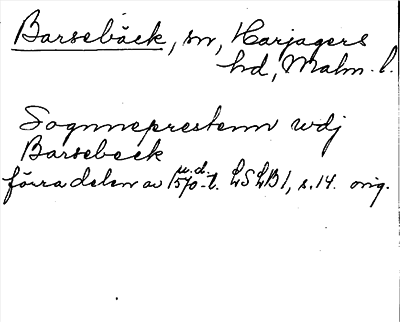 Barsebäck, sn, Harjagers
hd, Malm. l.
Sognneprestenn wdj
Barsebeck
u.d.
förra delen av 1570-t. LSLB1, s. 14. orig.